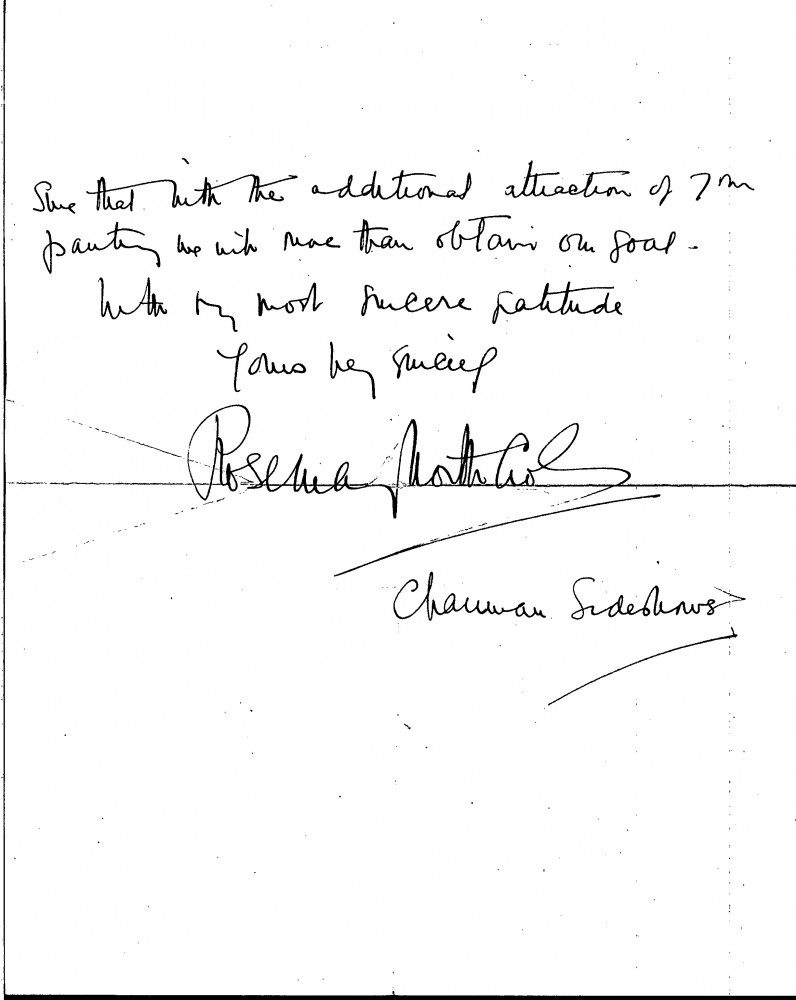 Sure that with the additional attraction of your
painting we will more than obtain our goal -
With my most sincere gratitude
Yours very sincerely
Rosemary
Chairman Sideshows